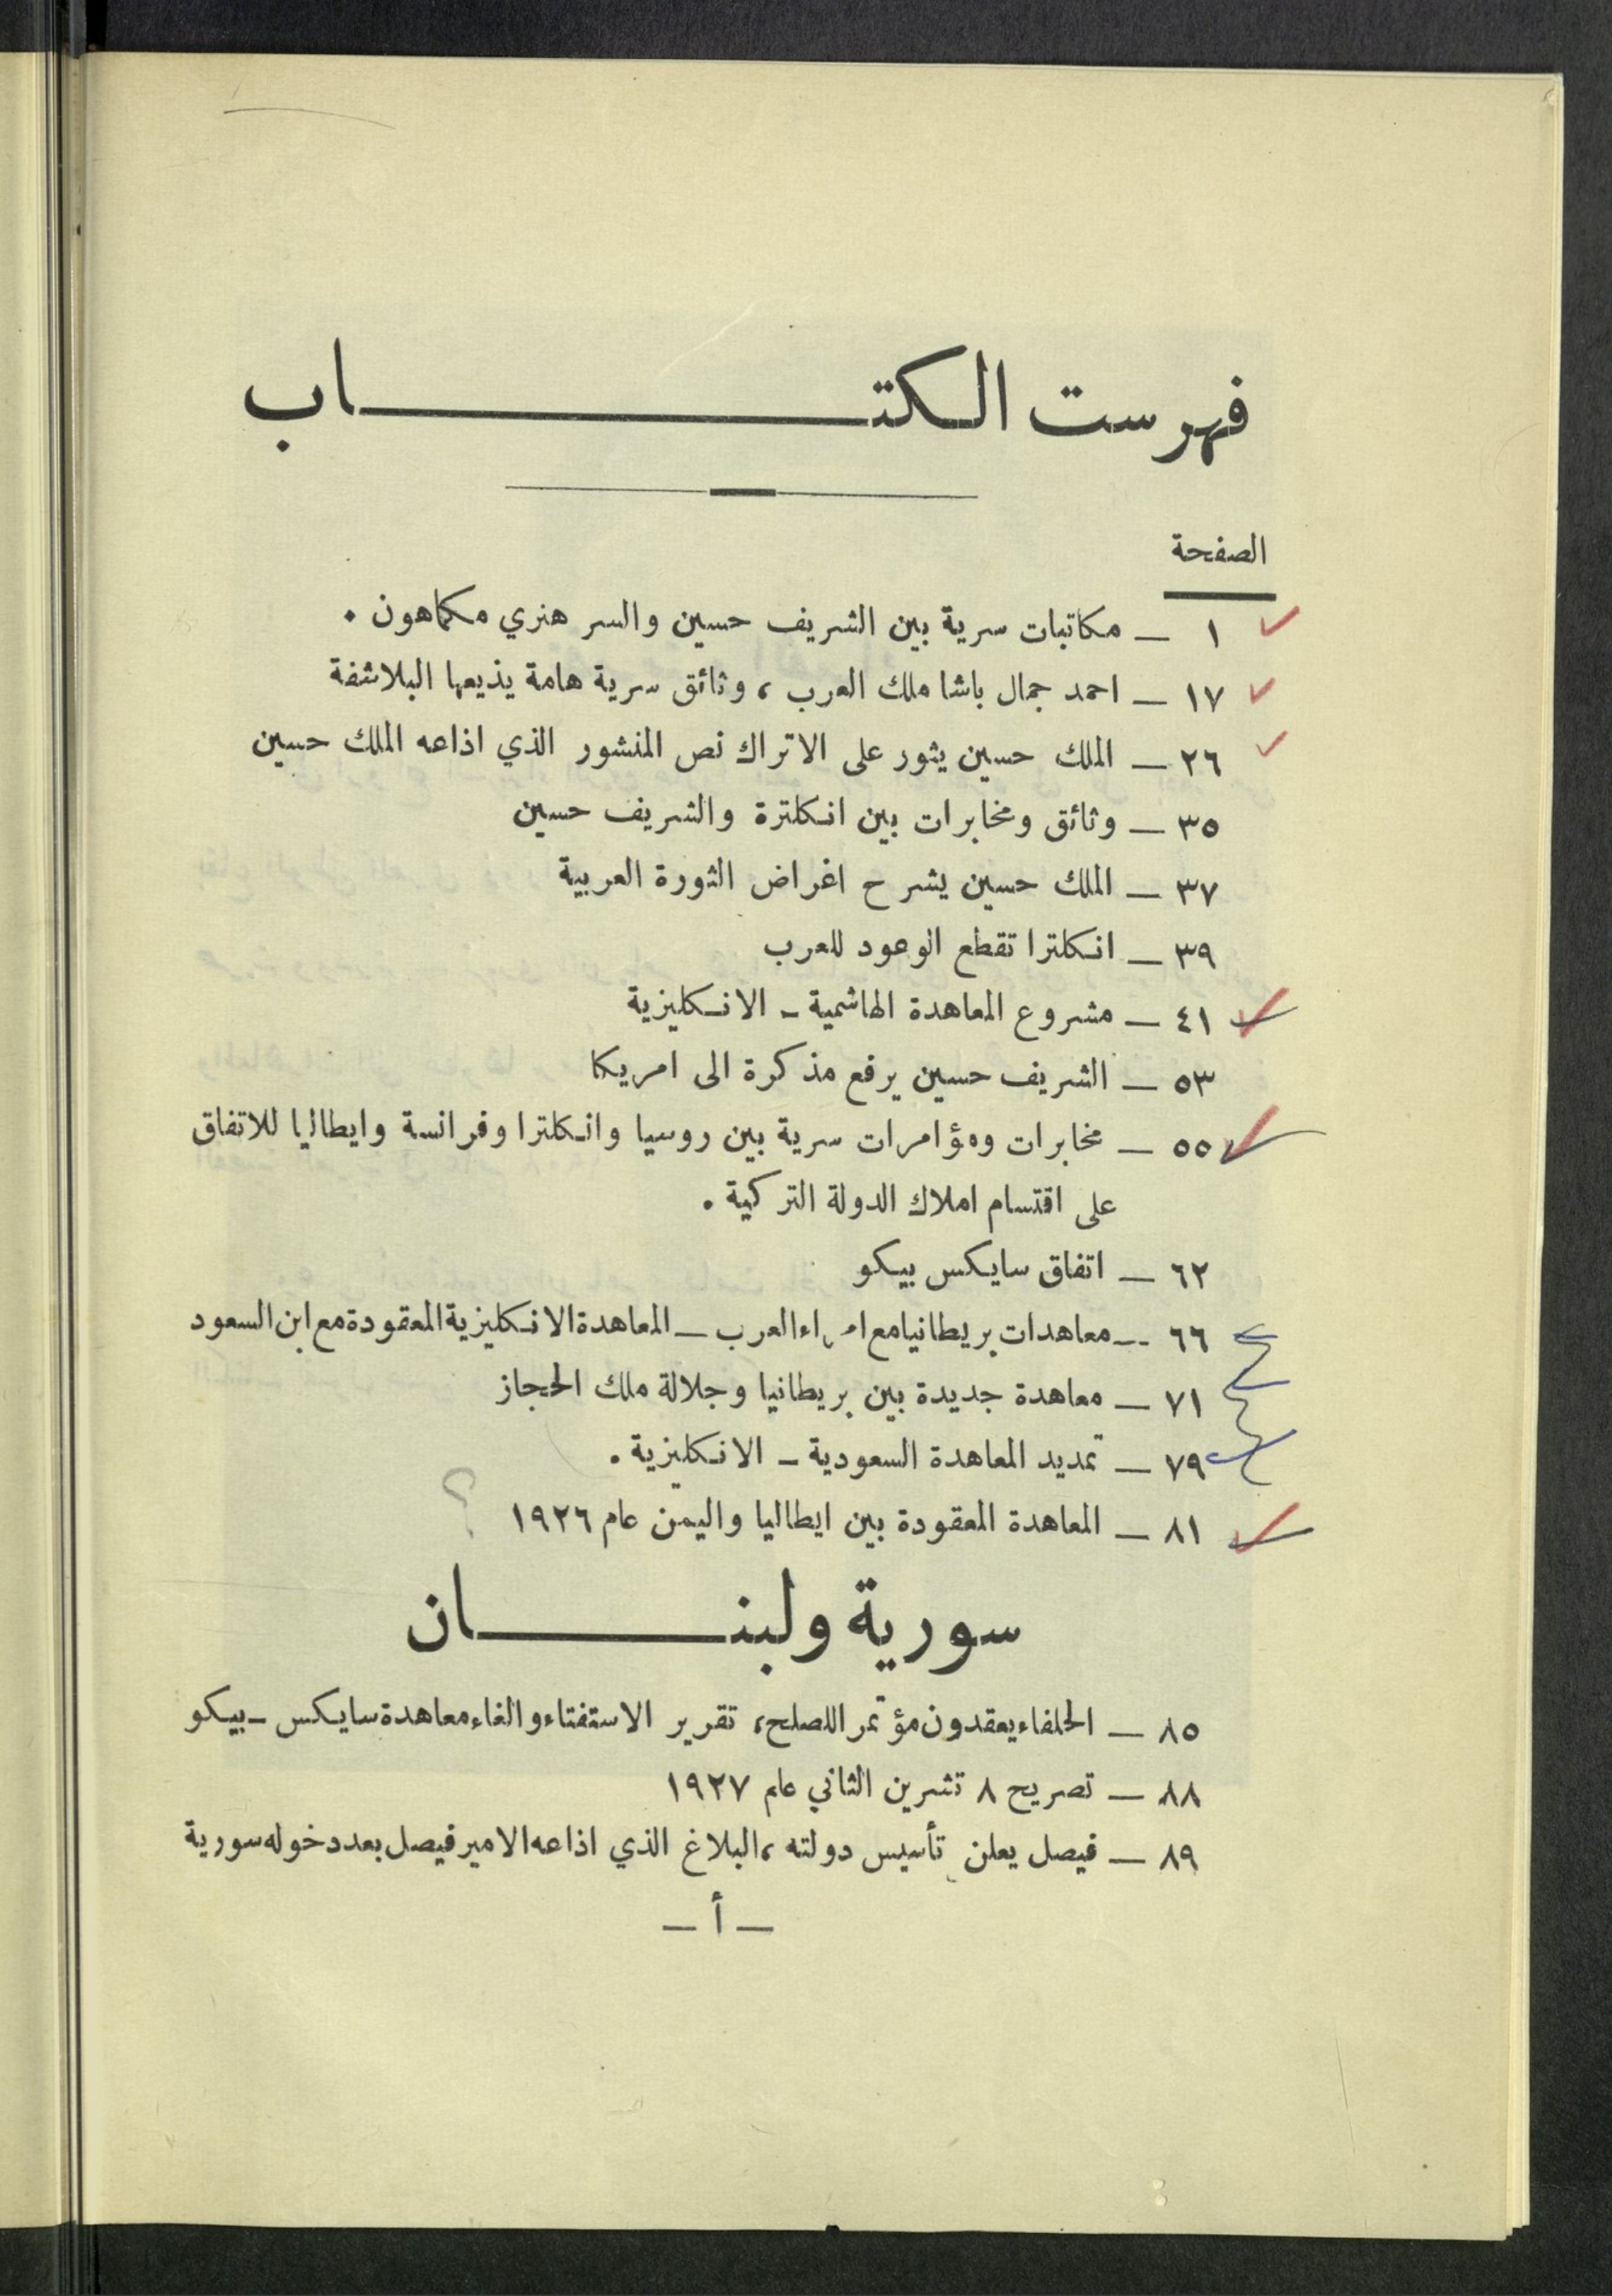 فهرست الكتاب
الصفحة
١ — مكاتبات سرية بين الشريف حسين والسر هنري مكماهون .
١٧ — احمد جمال باشا ملك العرب ، وثائق سرية هامة يذيعها البلاشفة
٢٦ — الملك حسين يثور على الاتراك نص المنشور الذي اذاعه الملك حسين
٣٥ — وثائق ومخابرات بين انكلترة والشريف حسين
٣٧ — الملك حسين يشرح اغراض الثورة العربية
٣٩ — انكلترا تقطع الوعود للعرب
٤١ — مشروع المعاهدة الهاشمية - الانكليزية
٥٣ — الشريف حسين يرفع مذكرة الى امريكا
٥٥ — مخابرات ومؤامرات سرية بين روسيا وانكلترا وفرانسة وايطاليا للاتفاق
على اقتسام املاك الدولة التركية .
٦٢ — اتفاق سايكس بيكو
٦٦ — معاهدات بريطانيا مع امراء العرب — المعاهدة الانكليزية المعقودة مع ابن السعود
٧١ — معاهدة جديدة بين بريطانيا وجلالة ملك الحجاز
٧٩ — تمديد المعاهدة السعودية - الانكليزية .
٨١ — المعاهدة المعقودة بين ايطاليا واليمن عام ١٩٢٦ ؟
سورية ولبنان
٨٥ — الحلفاء يعقدون مؤتمر اللصلح ، تقرير الاستفتاء والغاء معاهدة سايكس - بيكو
٨٨ — تصريح ٨ تشرين الثاني عام ١٩٢٧
٨٩ — فيصل يعلن تأسيس دولته ، البلاغ الذي اذاعه الامير فيصل بعد دخوله سورية
— أ —